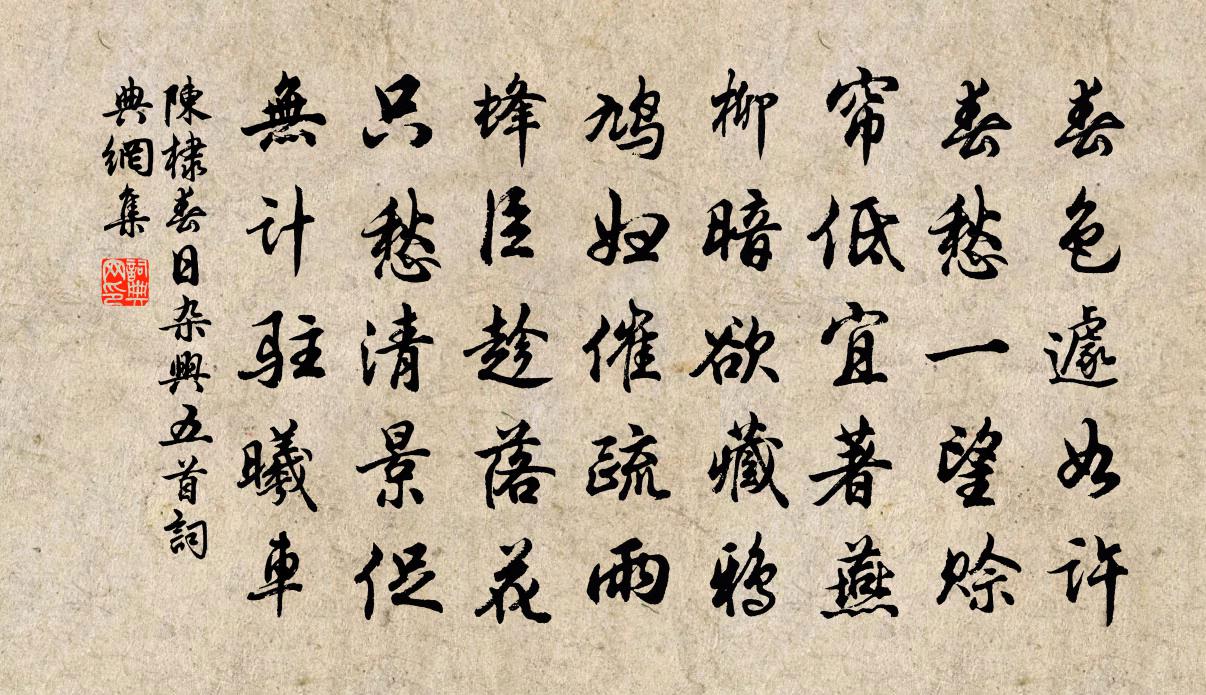 春色遽如许
春愁一望赊
帘低宜著燕
柳暗欲藏鸦
鸠妇催疏雨
蜂臣趁落花
只愁清景促
無计驻曦車
陳棣春日杂興五首詞
典網集
詞典網印